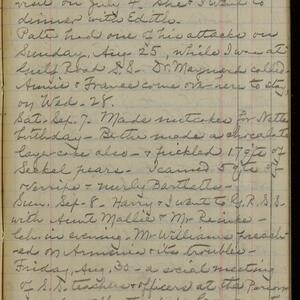 visit on July 4. She & I went to
dinner with Edith.
Patti had one of his attacks on
Sunday, Aug 25, while I was at
Gulf Road S.S. Dr. Maynard called.
Annie & France come on here to stay
on Wed - 28.
Sat. Sep. 7. Made nutcakes for Netta
birthday - Bertha made a chocolate
layer cake also - & pickled 17 qts of
Seckel pears. I canned 5 qts of
over ripe & nurly Bartletts -
Sun. Sep - 8 - Harry & I went to G.R.S.S.
with Aunt Mallie & Mr
Ch. in evening. Mr Williams preach-
ed on Armenia & its troubles -
Friday, Aug. 30 - a social meeting
of S.S. teachers & officers at the Parson